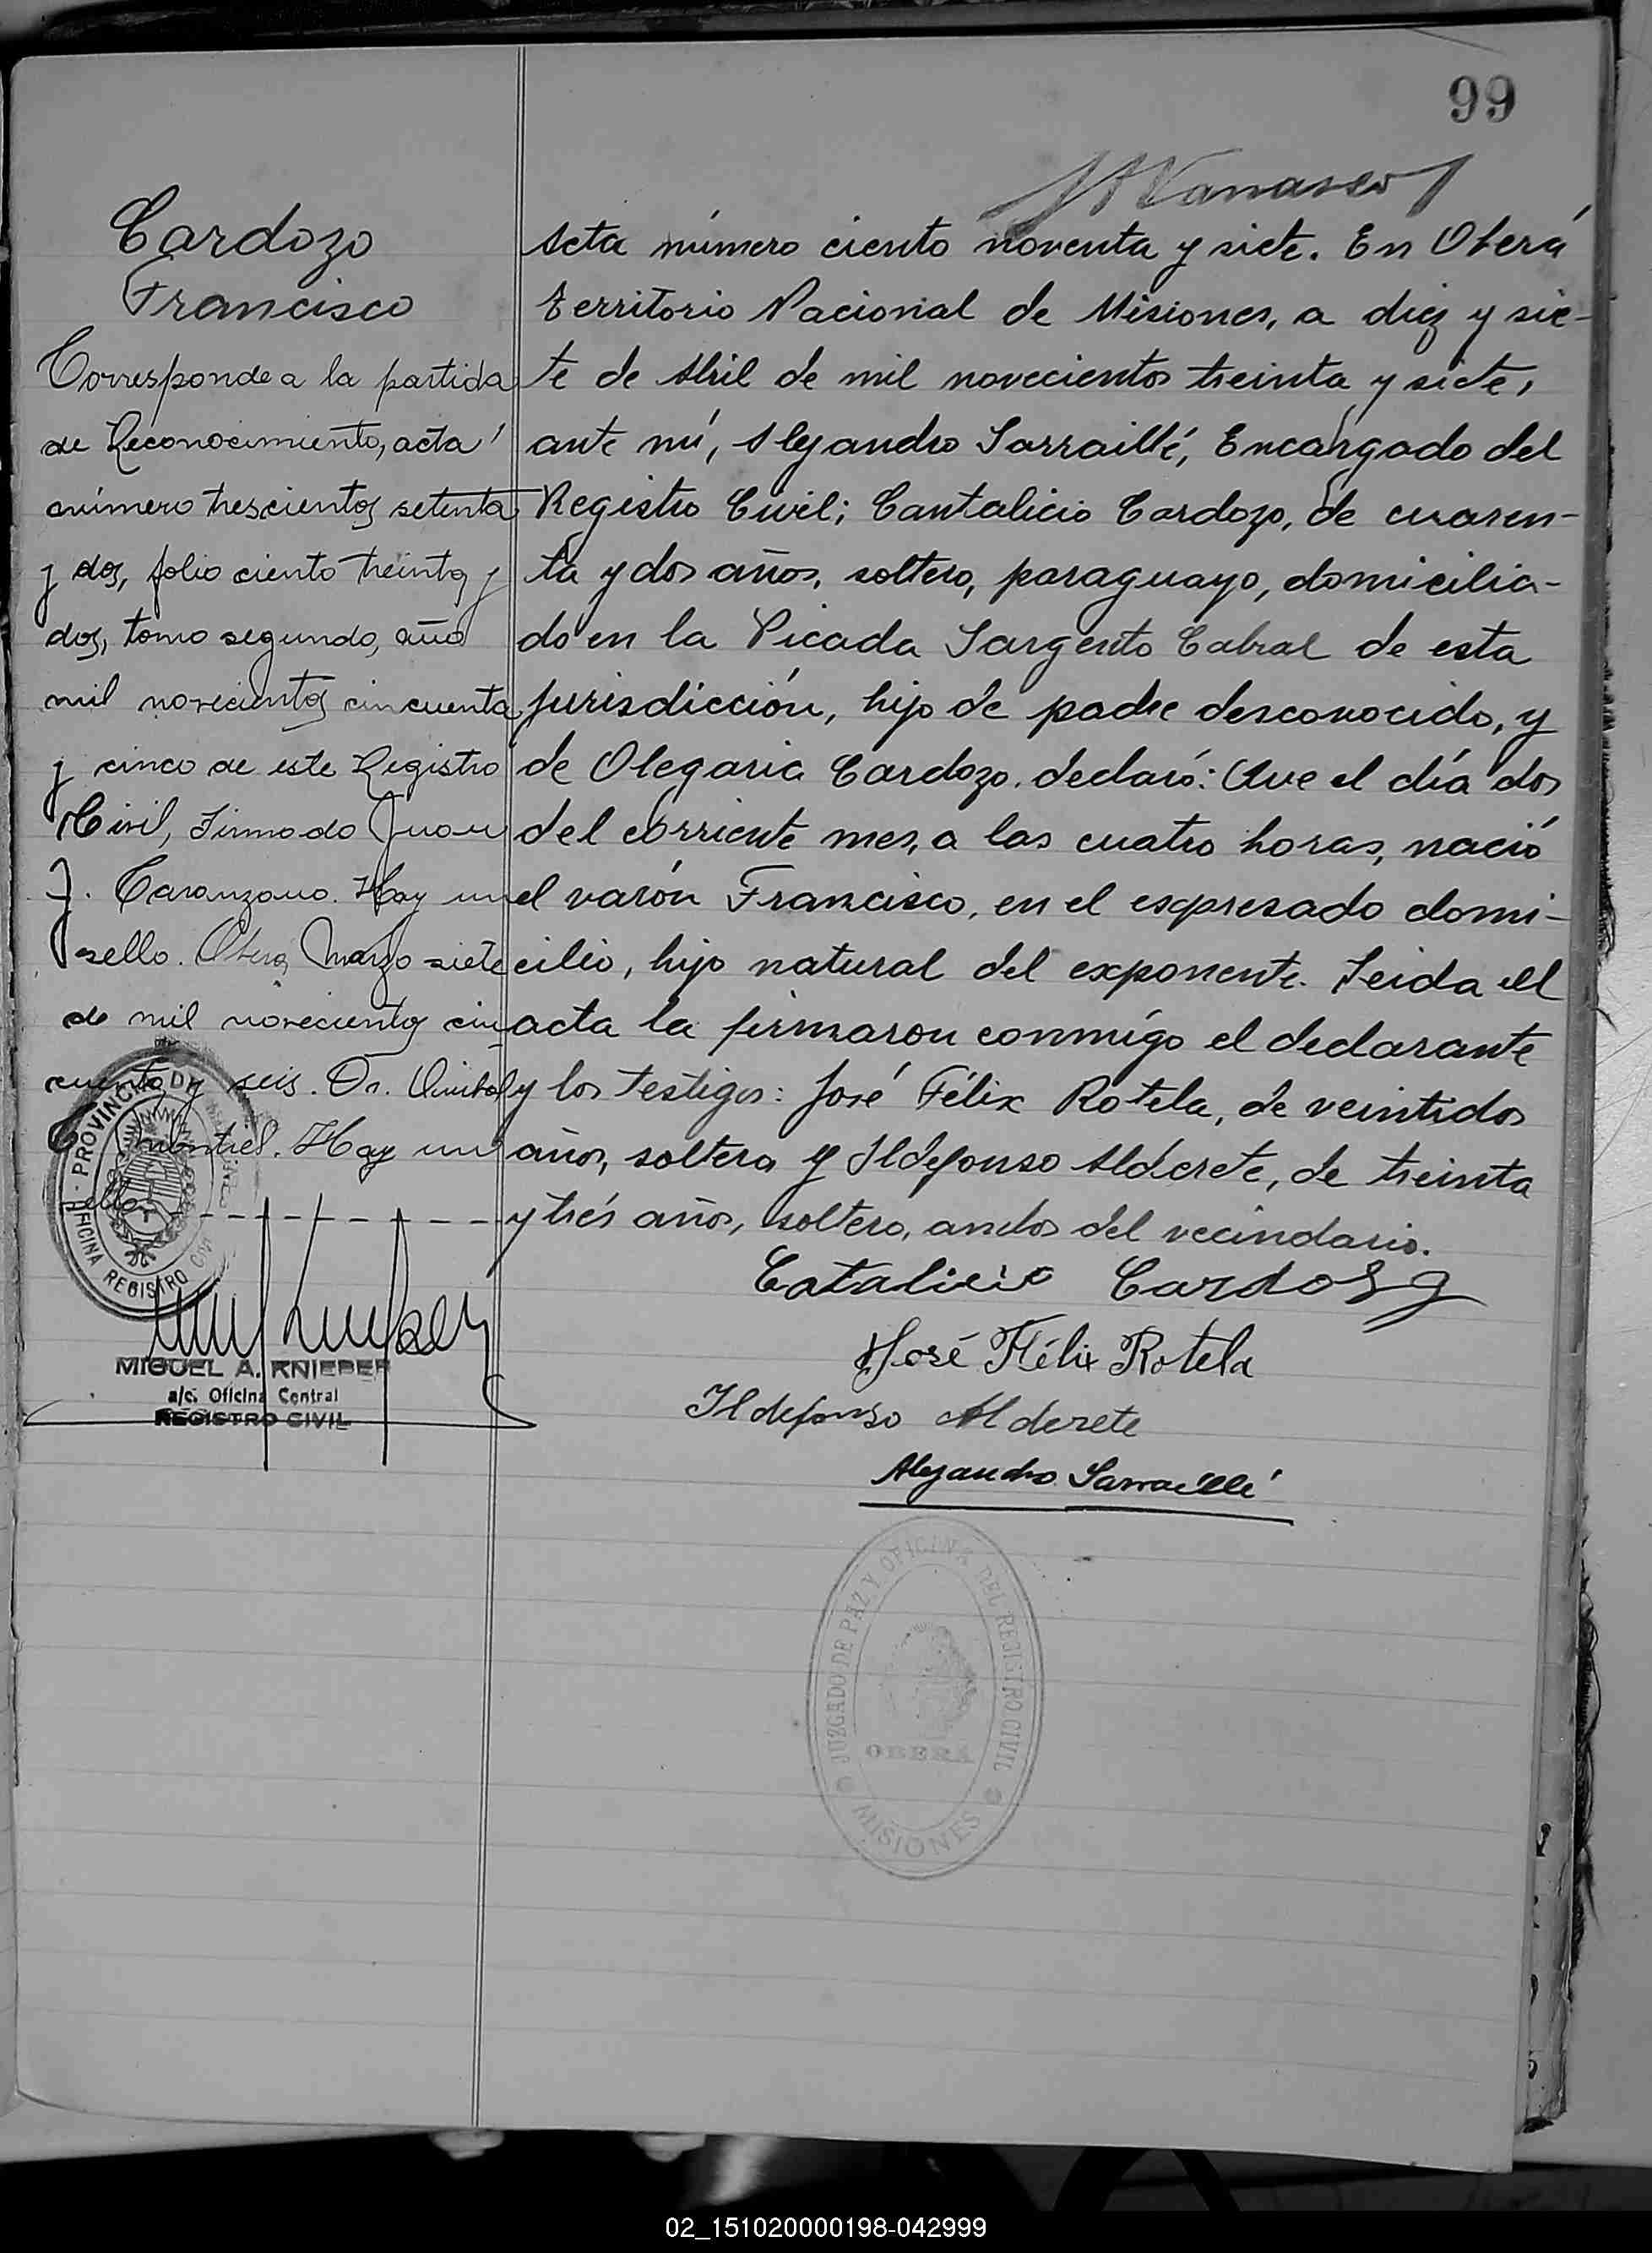 99
Cardozo
Francisco
Corresponde a la partida
de Reconocimiento, acta
número trescientos setenta
y dos, folio ciento treinta y
dos, tomo segundo, año
mil novecientos cincuenta
y cinco de este Registro
Civil, Firmado Juan
J. Taranzano. Hay un
sello. Oberá, Marzo siete
de mil novecientos cin
cuenta y seis. Dr.
Montiel. Hay un
sello
PROVINCIA DE
OFICINA REGISTRO CIVIL
MIGUEL A. KNIEBER
a/c. Oficina Central
REGISTRO CIVIL
Acta número ciento noventa y siete. En Oberá
territorio Nacional de Misiones, a diez y sie-
te de Abril de mil novecientos treinta y siete,
ante mí, Alejandro Sarraillé, Encargado del
Registro Civil; Cantalicio Cardozo, de cuaren-
ta y dos años, soltero, paraguayo, domicilia-
do en la Picada Sargento Cabral de esta
jurisdicción, hijo de padre desconocido, y
de Olegaria Cardozo. declaró: Que el día dos
del corriente mes, a las cuatro horas, nació
el varón Francisco, en el expresado domi-
cilio, hijo natural del exponente. Leida el
acta la firmaron conmigo el declarante
y los testigos: José Félix Rotela, de veintidos
años, soltero y Ildefonso Alderete, de treinta
y trés años, soltero, ambos del vecindario.
Catalicio Cardoso
José Félix Rotela
Ildefonso Alderete
Alejandro Sarraillé
JUZGADO DE PAZ Y OFICINA DEL REJISTRO CIVIL
OBERÁ
MISIONES
02_151020000198-042999